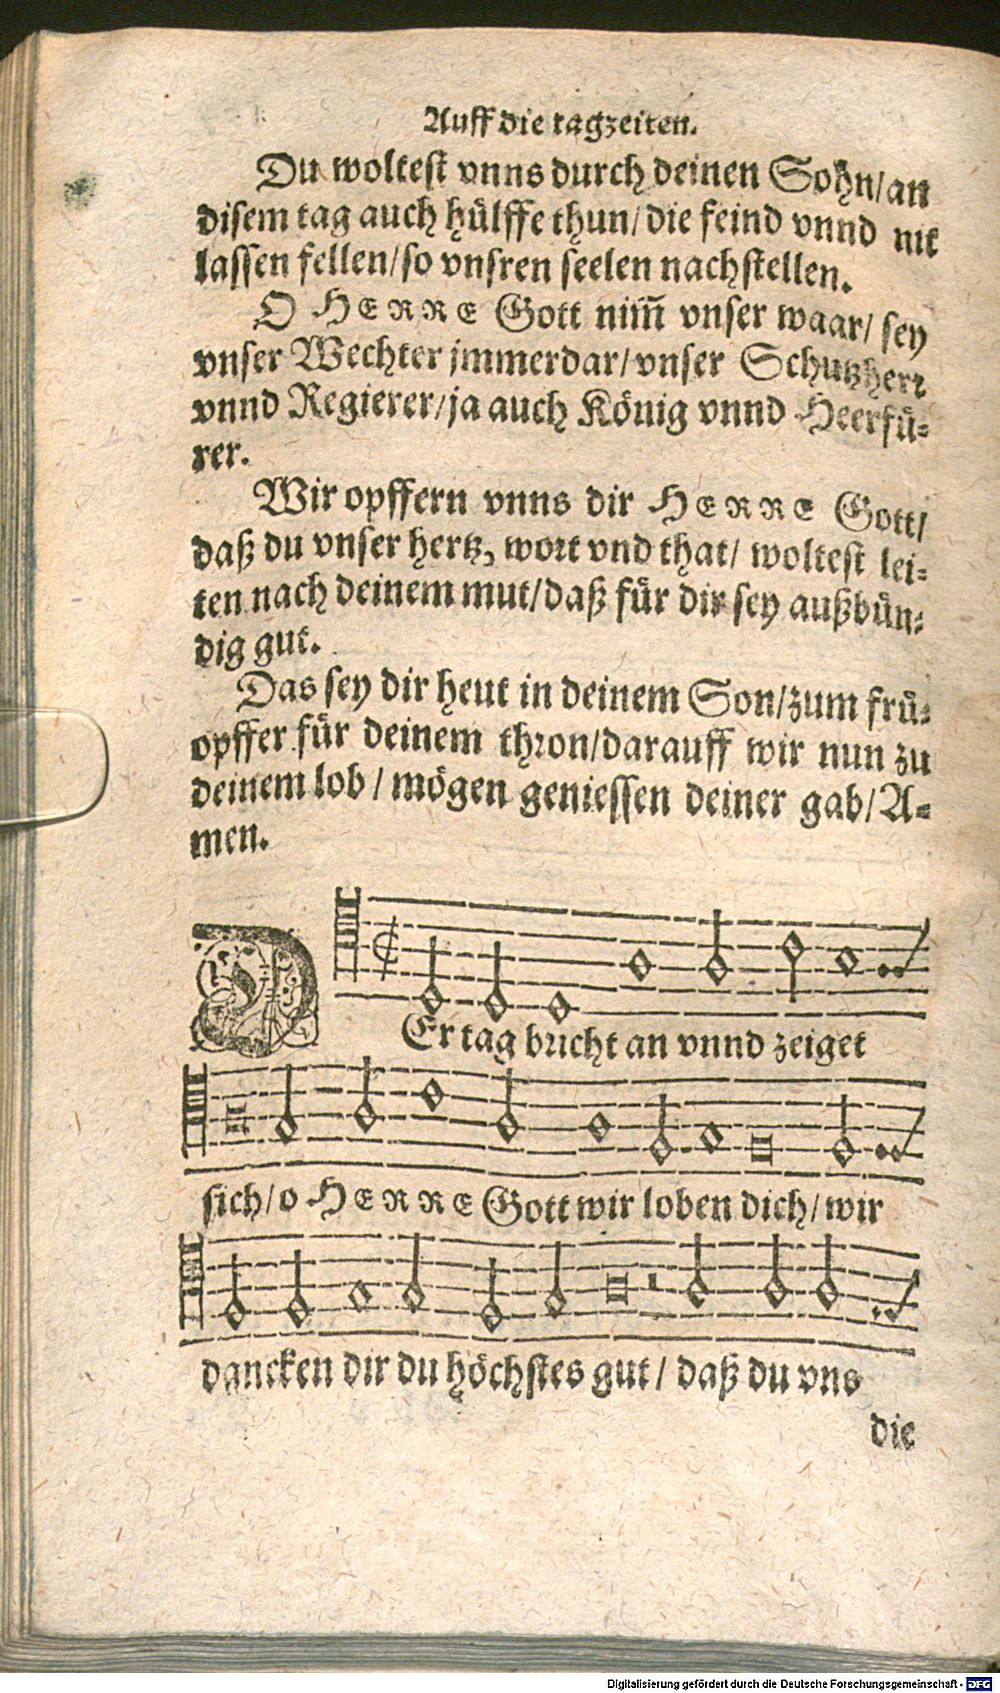 Auff die tagzeiten.
Du woltest vnns durch deinen Sohn/an
disem tag auch hülffe thun/die feind vnnd nit
lassen fellen/so vnsren seelen nachstellen.
O HERRE Gott nim̄ vnser waar/ sey
vnser Wechter jmmerdar/vnser Schutzherr
vnnd Regierer/ja auch König vnnd Heerfü-
rer.
Wir opffern vnns dir HERRE Gott/
daß du vnser hertz, wort vnd that/ woltest lei-
ten nach deinem mut/daß für dir sey außbün-
dig gut.
Das sey dir heut in deinem Son/zum frü-
opffer für deinem thron/darauff wir nun zu
deinem lob/ mögen geniessen deiner gab/A-
men.
DEr tag bricht an vnnd zeiget
sich/o HERRE Gott wir loben dich/wir
dancken dir du höchstes gut/ daß du vns
die
Digitalisierung gefördert durch die Deutsche Forschungsgemeinschaft - DFG